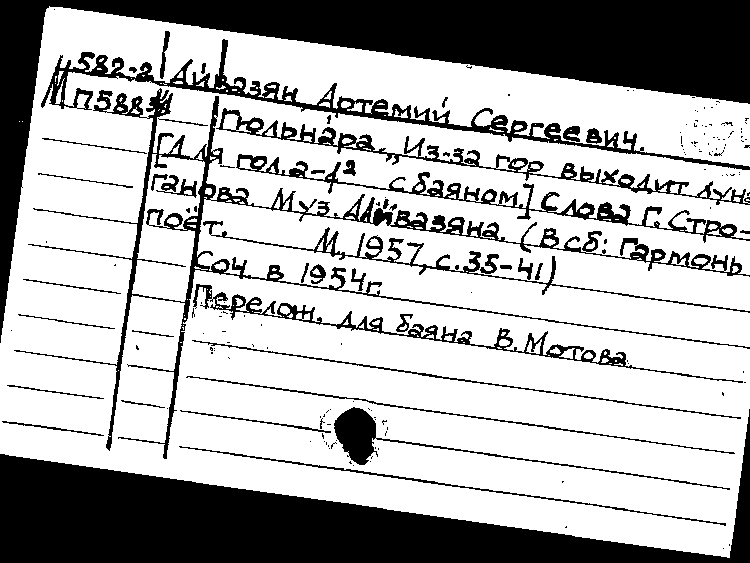 М 582-2 Айвазян, Артемий Сергеевич.
П588
Гюльнара. „Из-за гор выходит луна
[Для гол. a-f² с баяном.] Слова Г. Стро-
ганова. Муз. А. Айвазяна. (В сб: Гармонь
поёт. М, 1957, с. 35-41)
Соч. в 1954г.
Перелож. для баяна В. Мотова